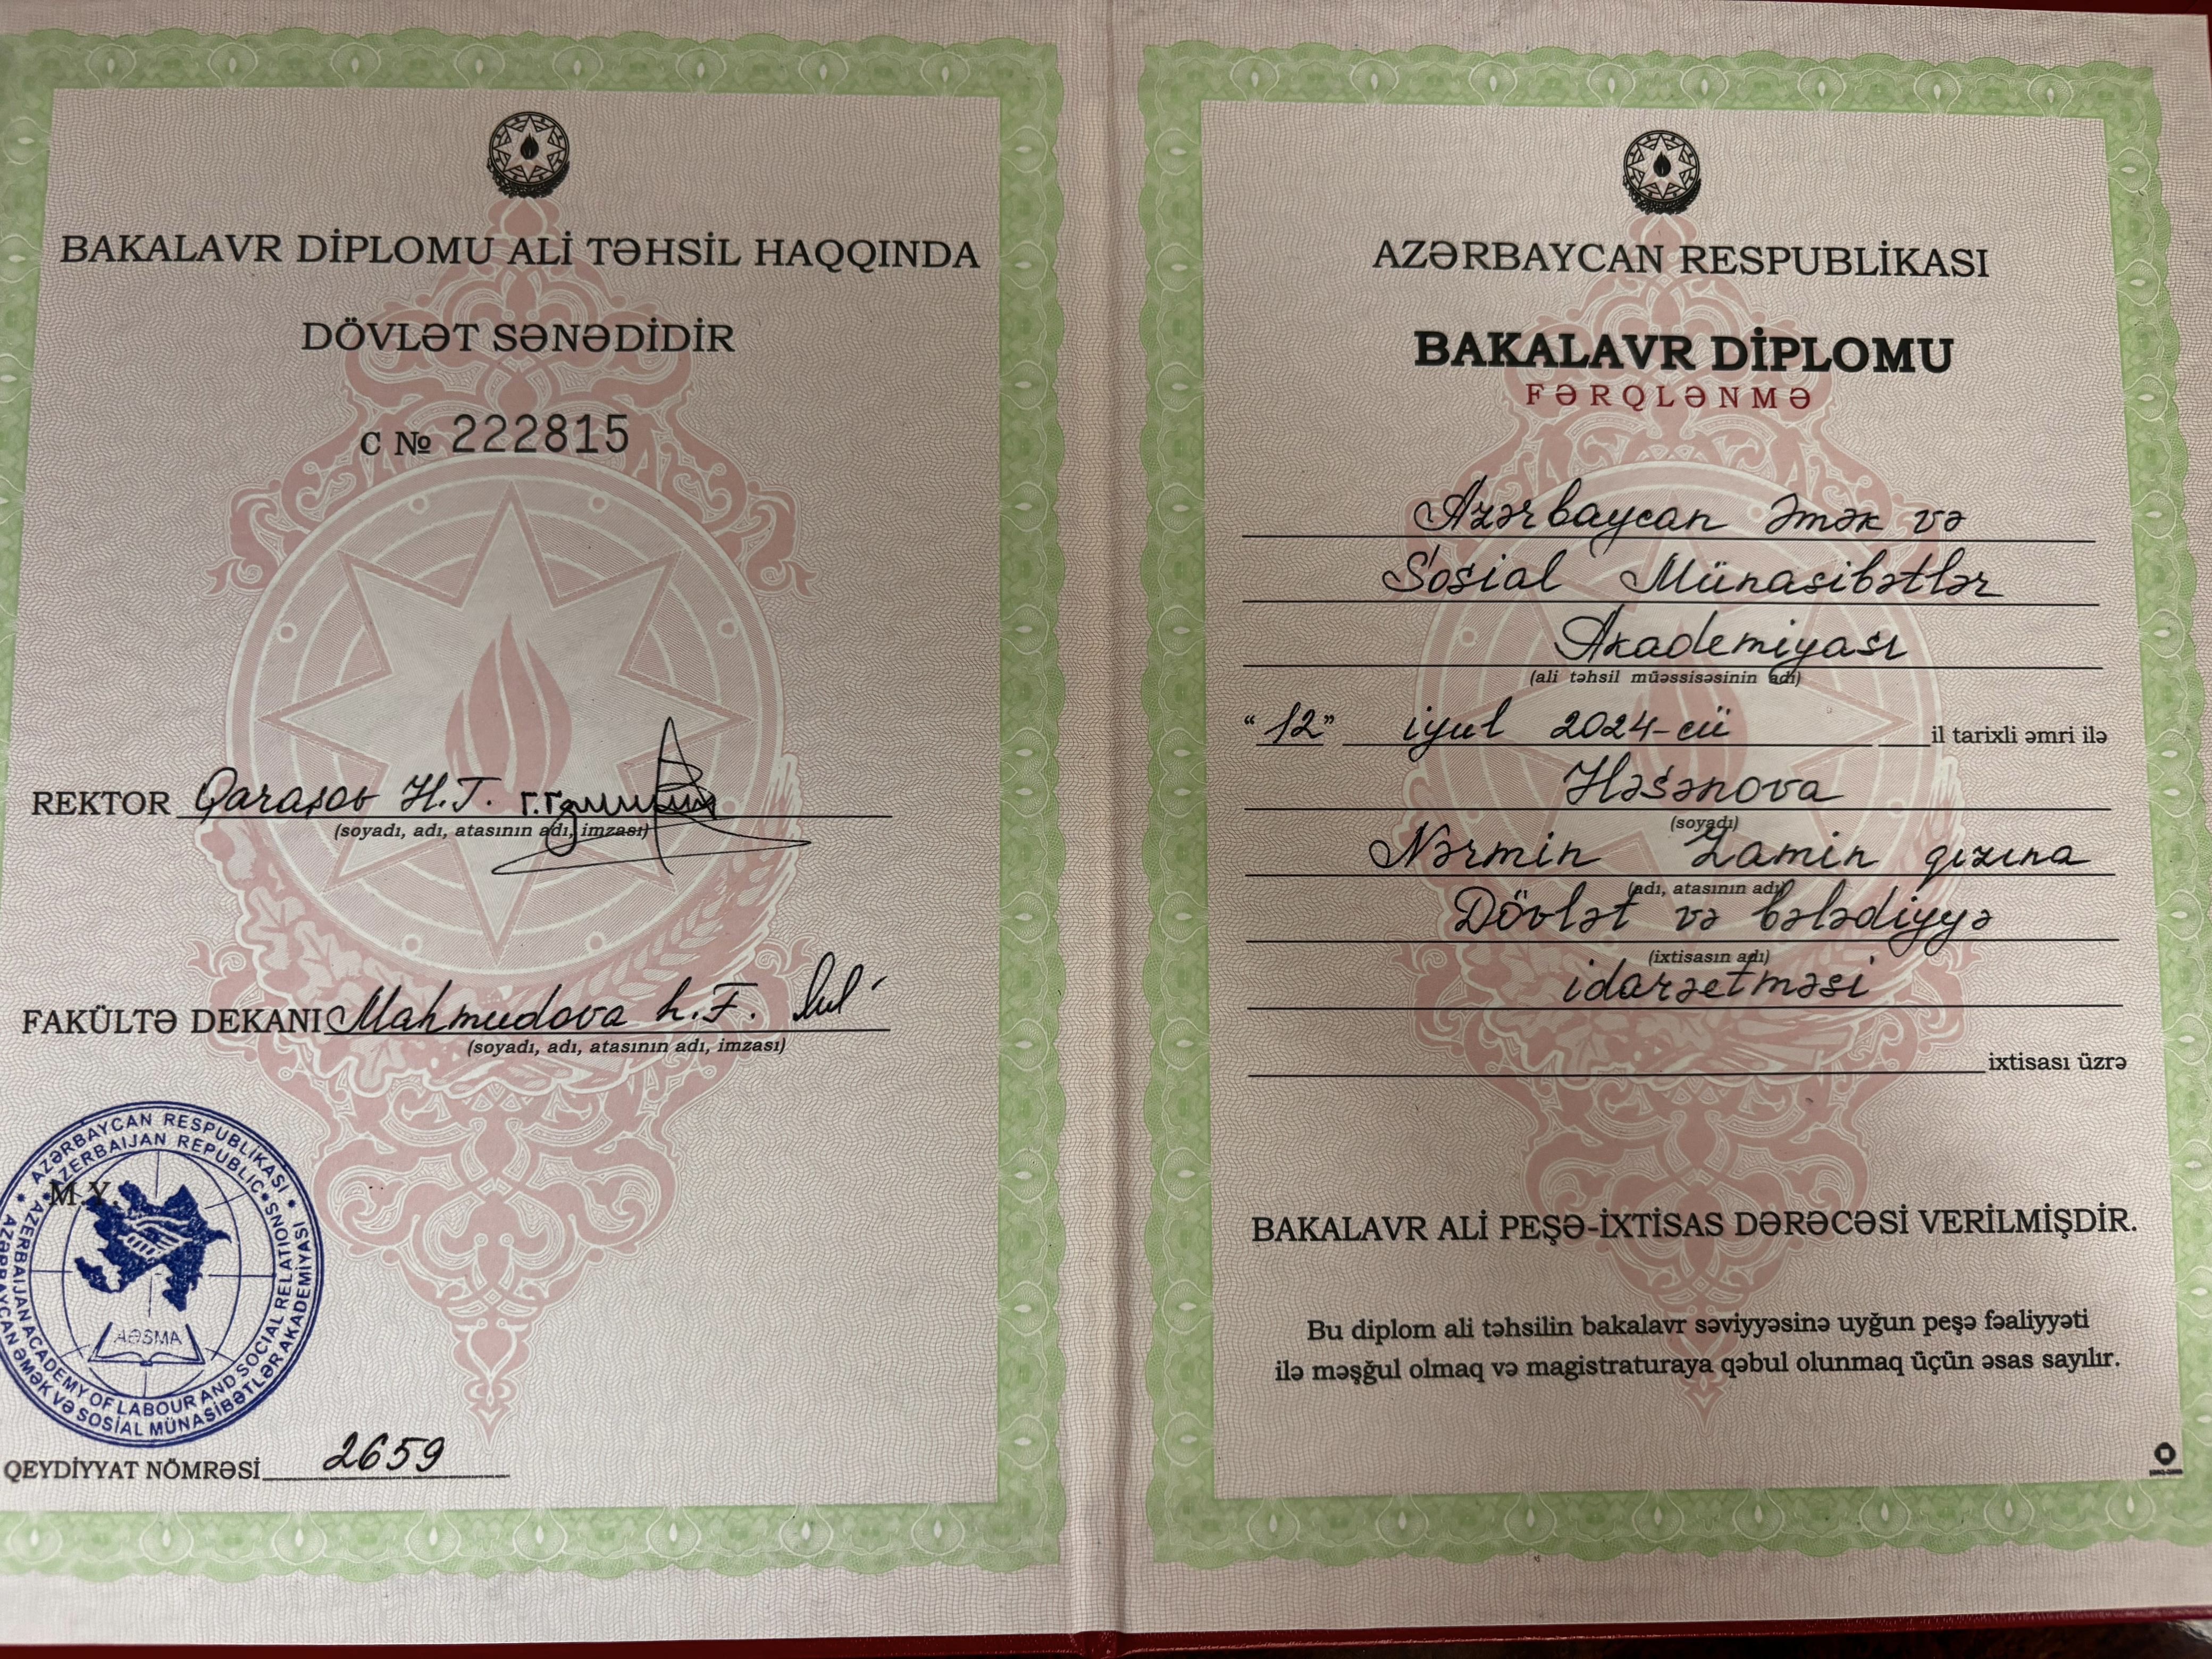 BAKALAVR DİPLOMU ALİ TƏHSİL HAQQINDA
DÖVLƏT SƏNƏDİDİR
C № 222815
REKTOR Qaraşov H.T.
(soyadı, adı, atasının adı, imzası)
FAKÜLTƏ DEKANI Mahmudova h.F.
(soyadı, adı, atasının adı, imzası)
M.Y.
AZƏRBAYCAN RESPUBLİKASI
AZERBAIJAN REPUBLIC
AZƏRBAYCAN ƏMƏK VƏ SOSİAL MÜNASİBƏTLƏR AKADEMİYASI
AZERBAIJAN ACADEMY OF LABOUR AND SOCIAL RELATIONS
AƏSMA
QEYDİYYAT NÖMRƏSİ 2659
AZƏRBAYCAN RESPUBLİKASI
BAKALAVR DİPLOMU
FƏRQLƏNMƏ
Azərbaycan Əmək və
Sosial Münasibətlər
Akademiyası
(ali təhsil müəssisəsinin adı)
“12” iyul 2024-cü il tarixli əmri ilə
Həsənova
(soyadı)
Nərmin Zamin qızına
(adı, atasının adı)
Dövlət və bələdiyyə
(ixtisasın adı)
idarəetməsi
ixtisası üzrə
BAKALAVR ALİ PEŞƏ-İXTİSAS DƏRƏCƏSİ VERİLMİŞDİR.
Bu diplom ali təhsilin bakalavr səviyyəsinə uyğun peşə fəaliyyəti
ilə məşğul olmaq və magistraturaya qəbul olunmaq üçün əsas sayılır.